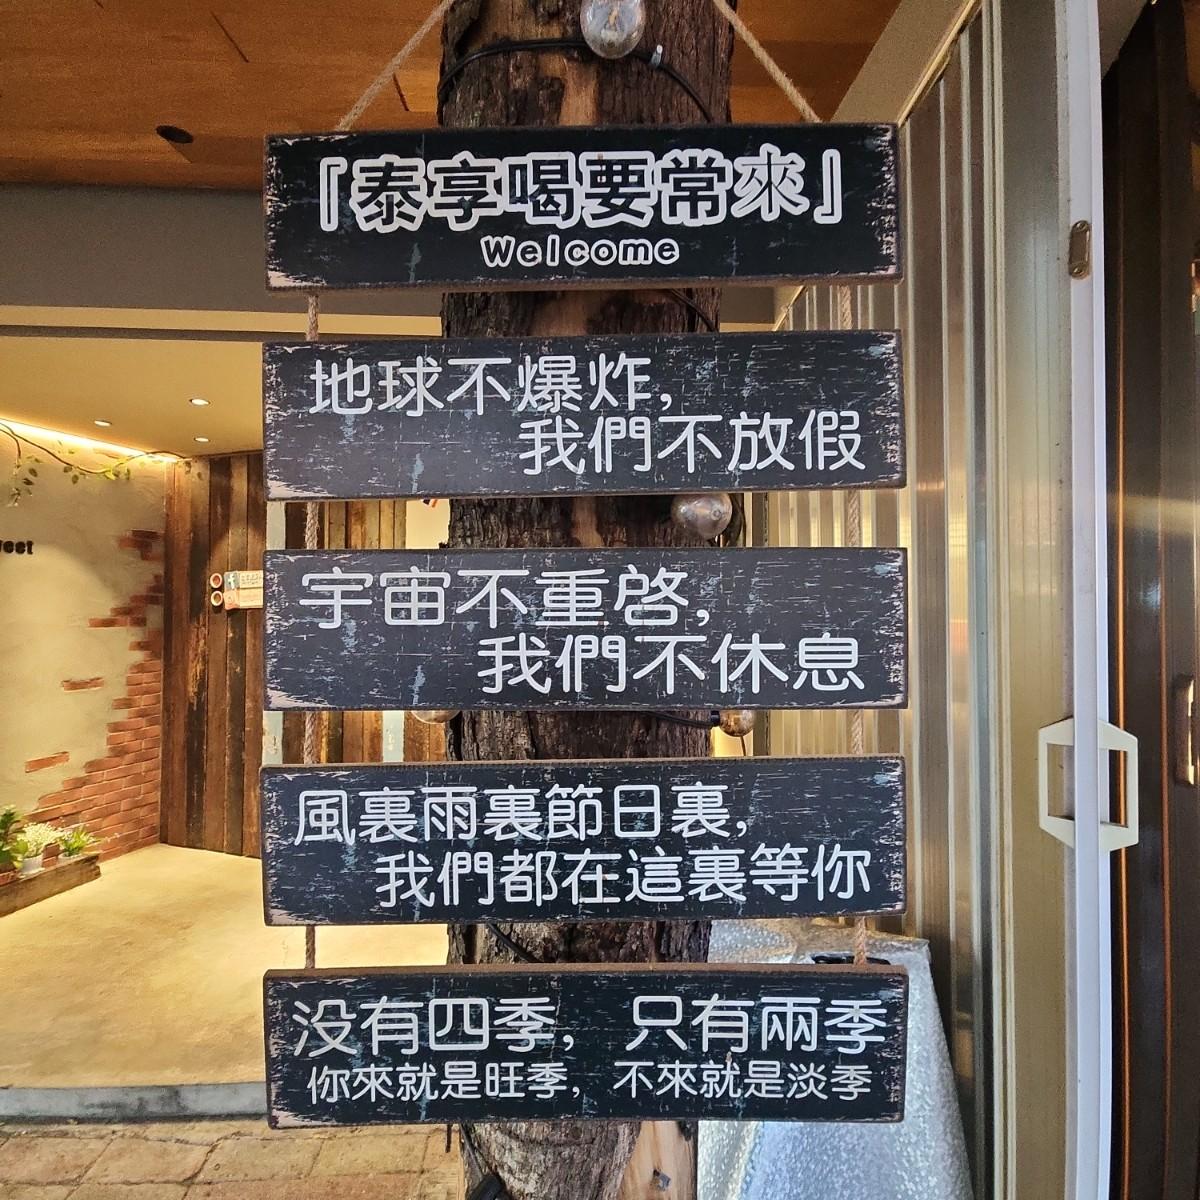 「泰享喝要常來」
Welcome
地球不爆炸,
我們不放假
宇宙不重啓,
我們不休息
風裏雨裏節日裏,
我們都在這裏等你
没有四季, 只有兩季
你來就是旺季, 不來就是淡季